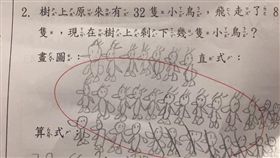 2. 樹上原來有32隻小鳥，飛走了8
隻，現在樹上剩下幾隻小鳥？
畫圖： 直式：
算式：